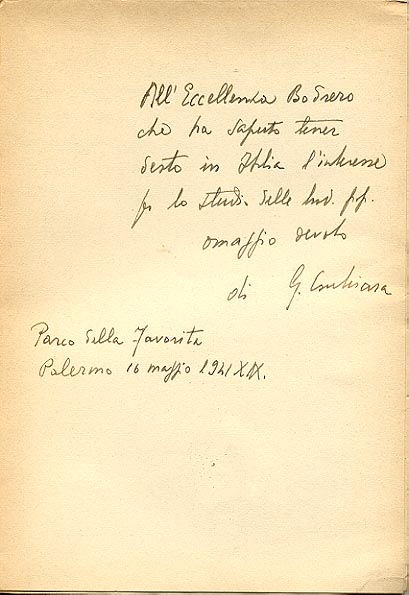 All'Eccellenza Bodrero
che ha saputo tener
desto in Italia l'interesse
per lo studio delle trad. pop.
omaggio devoto
di G. Cocchiara
Parco della Favorita
Palermo 16 maggio 1941 XIX.